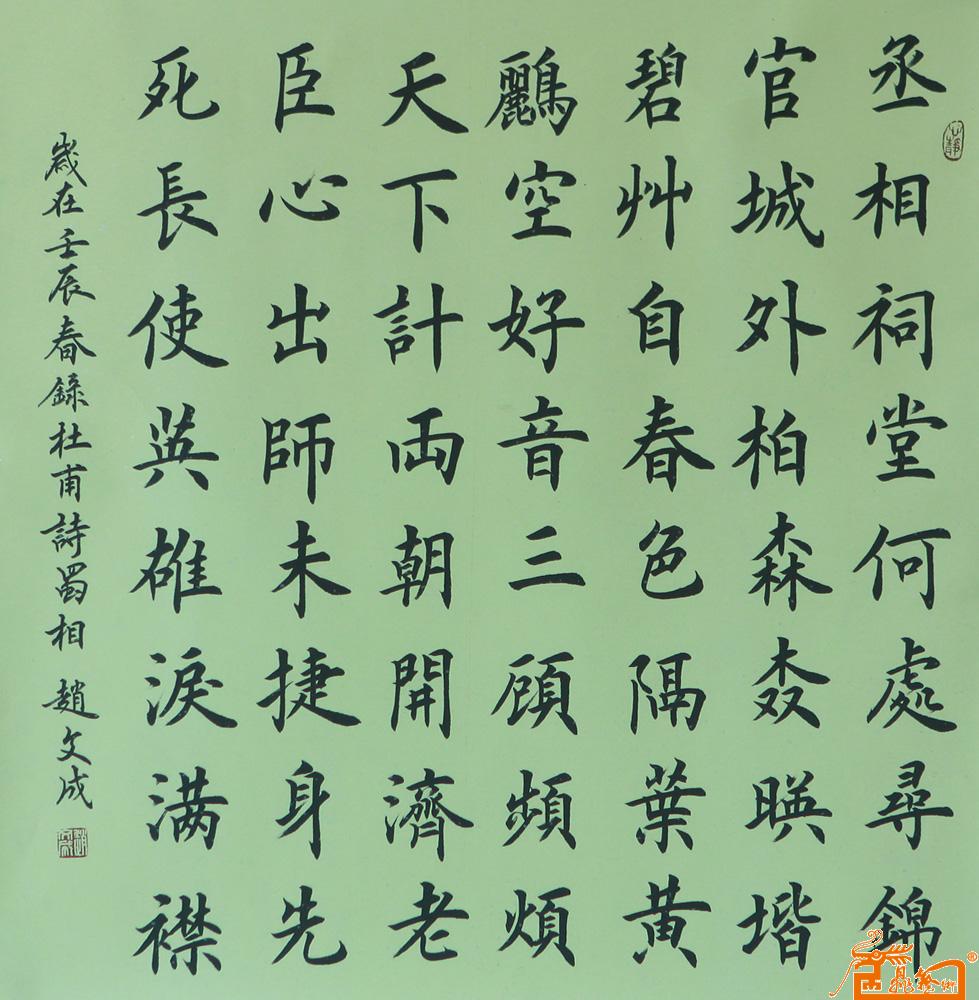 丞相祠堂何處尋錦
官城外柏森森暎堦
碧艸自春色隔葉黄
鸝空好音三顧頻煩
天下計兩朝開濟老
臣心出師未捷身先
死長使英雄淚满襟
歲在壬辰春録杜甫詩蜀相 趙文成